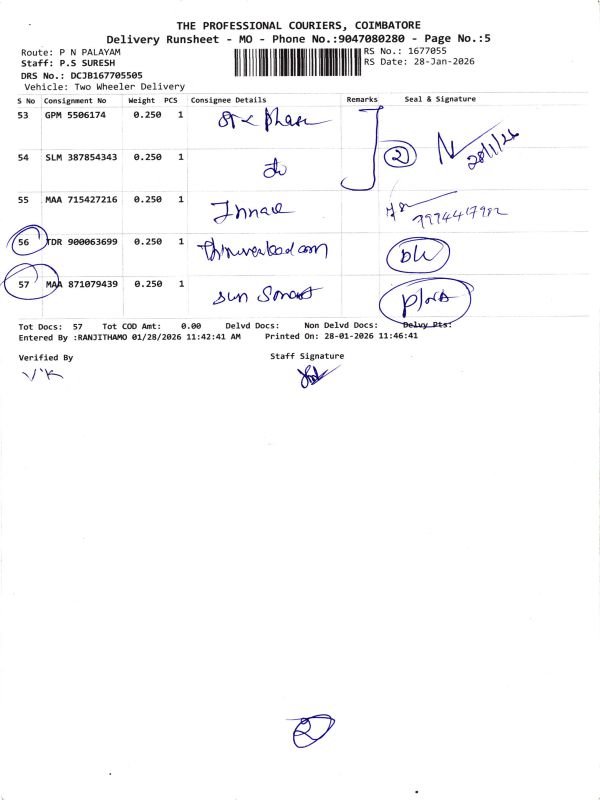 THE PROFESSIONAL COURIERS, COIMBATORE
Delivery Runsheet - MO - Phone No.:9047080280 - Page No.:5
Route: P N PALAYAM RS No.: 1677055
Staff: P.S SURESH RS Date: 28-Jan-2026
DRS No.: DCJB167705505
Vehicle: Two Wheeler Delivery
S No Consignment No Weight PCS Consignee Details Remarks Seal & Signature
53 GPM 5506174 0.250 1
2 28/1/26
54 SLM 387854343 0.250 1 do
55 MAA 715427216 0.250 1
56 TDR 900063699 0.250 1
57 MAA 871079439 0.250 1 Sun
Tot Docs: 57 Tot COD Amt: 0.00 Delvd Docs: Non Delvd Docs: Delvy Pts:
Entered By :RANJITHAMO 01/28/2026 11:42:41 AM Printed On: 28-01-2026 11:46:41
Verified By Staff Signature
V'K
2